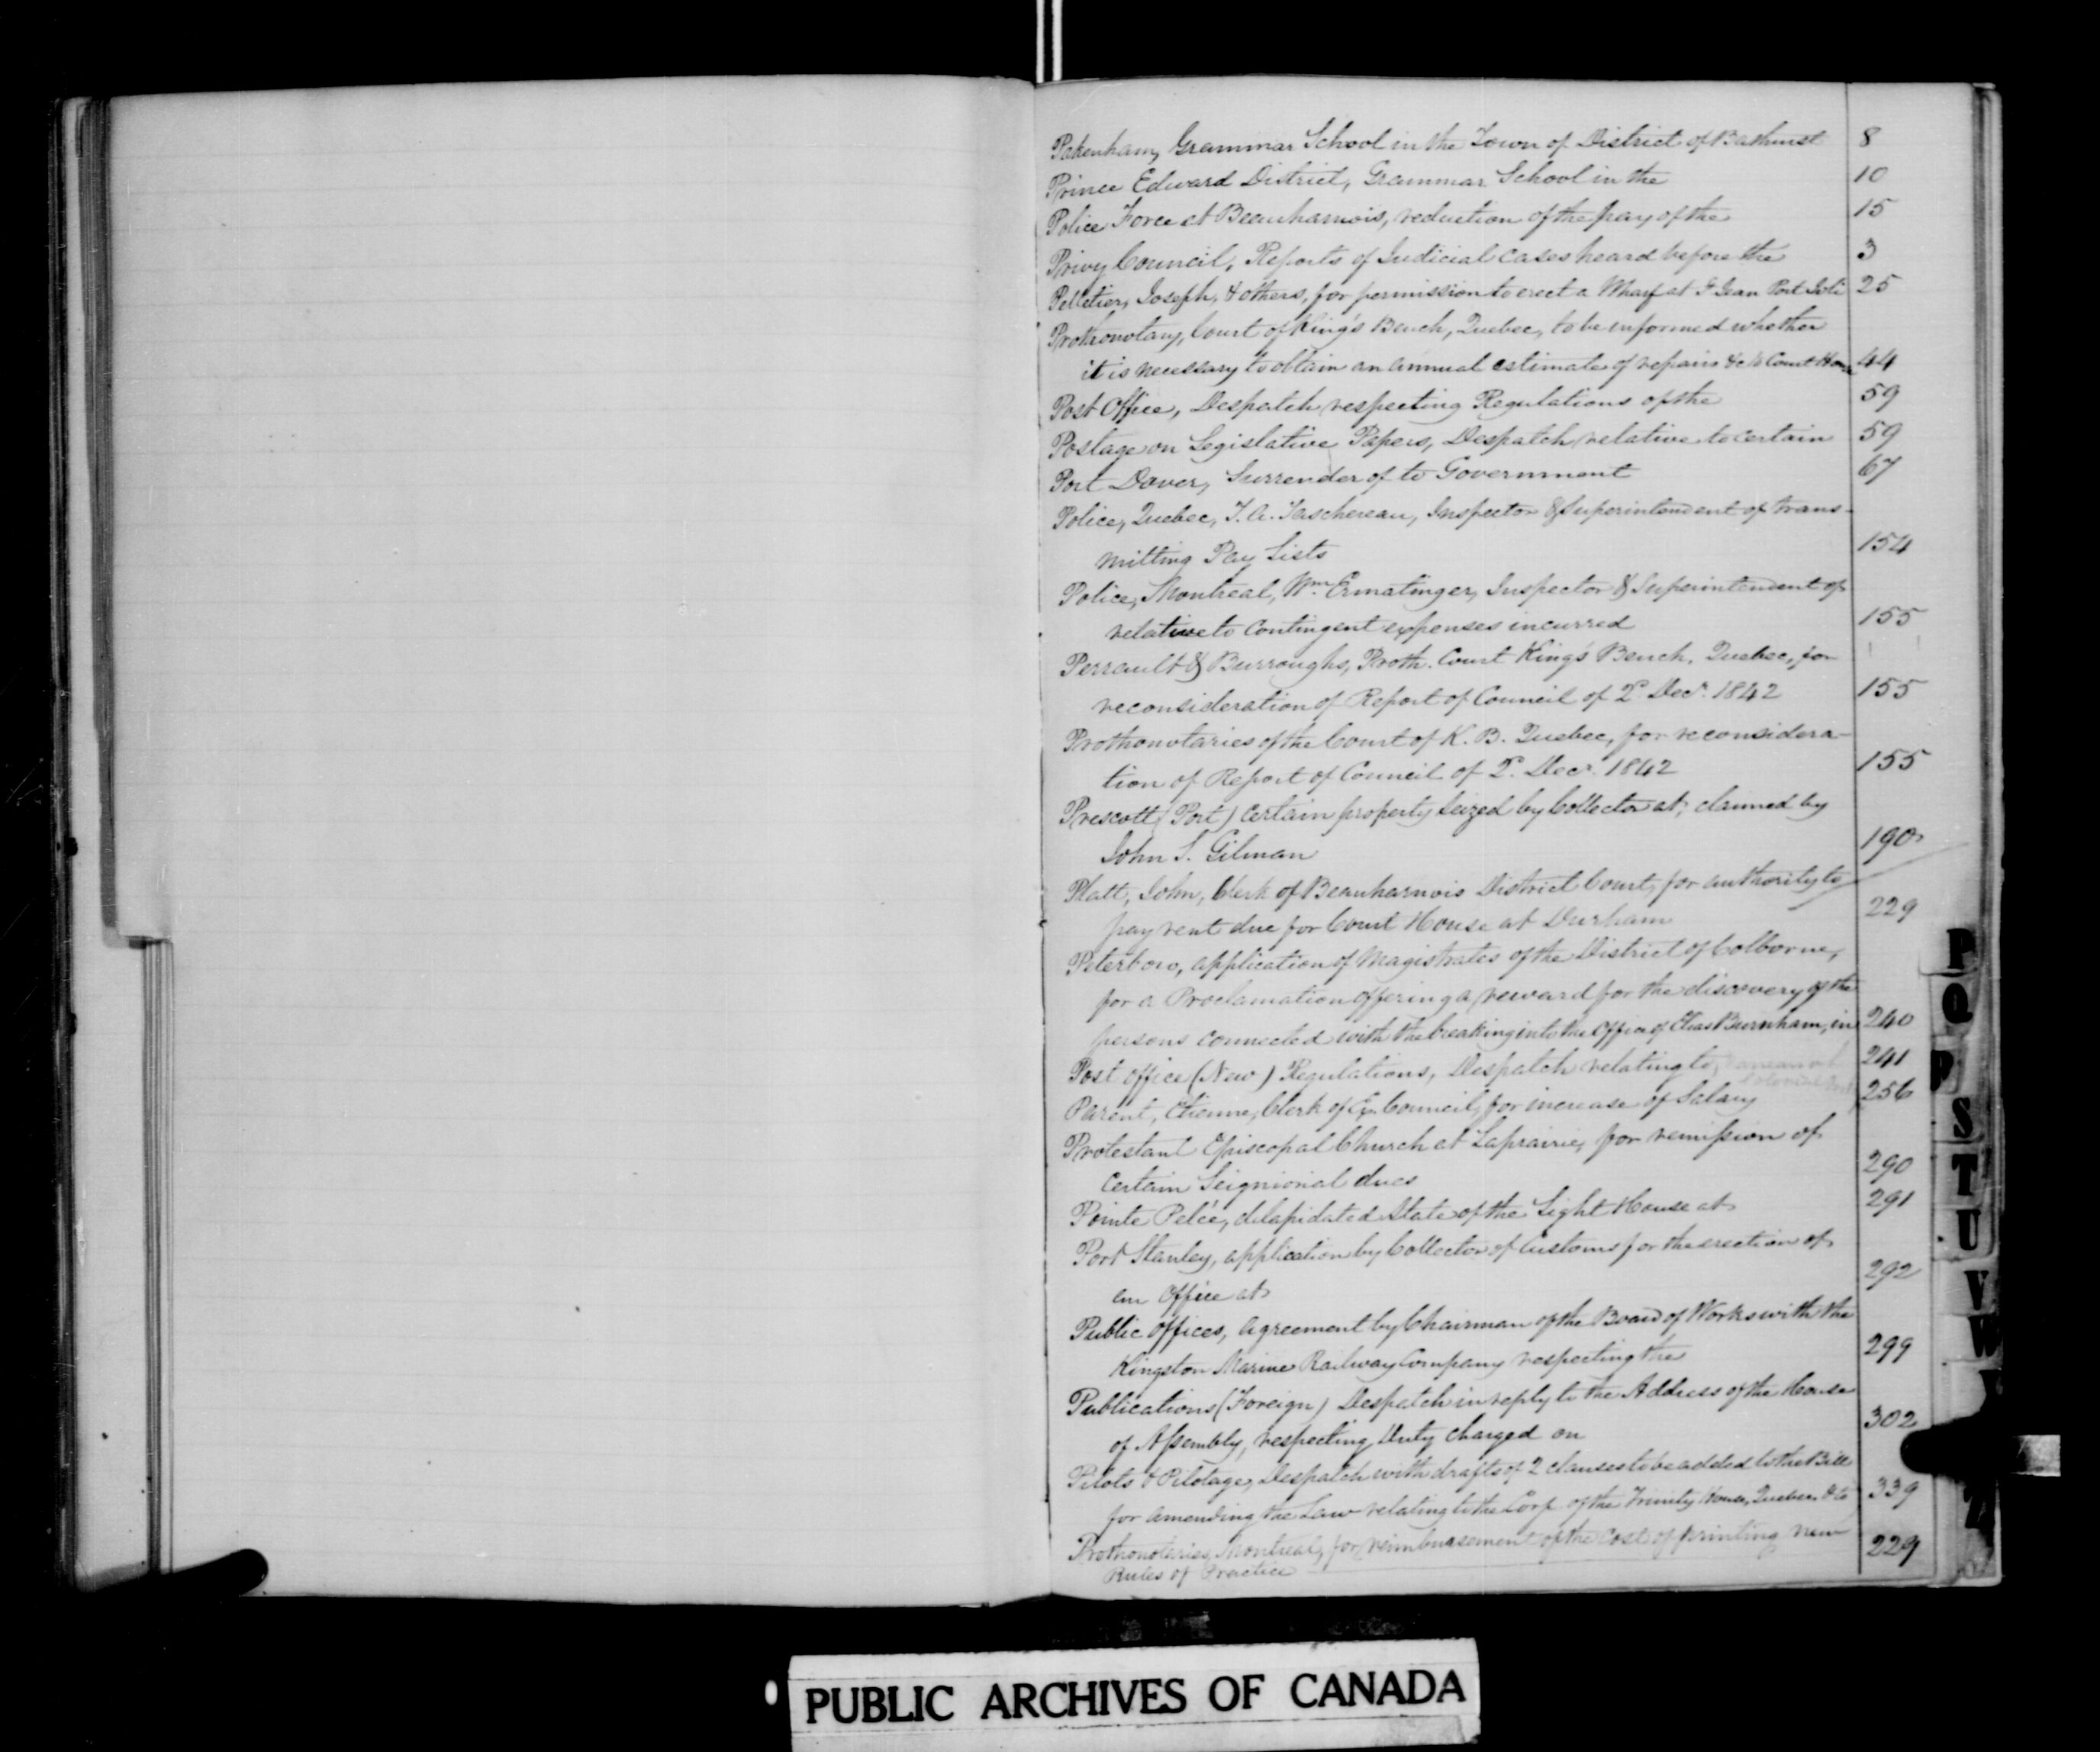 Pakenham, Grammar School in the Town of District of Bathurst 8
Prince Edward District, Grammar School in the 10
Police Force at Beauharnois, reduction of the pay of the 15
Privy Council, Reports of Judicial cases heard before the 3
Pelletier, Joseph, & others, for permission to erect a Wharf at St Jean Port Joli 25
Prothonotary, Court of King's Bench, Quebec, to be informed whether
it is necessary to obtain an annual estimate of repairs &c to Court House 44
Post Office, Despatch respecting Regulations of the 59
Postage on Legislative Papers, Despatch relative to certain 59
Port Dover, Surrender of to Government 67
Police, Quebec, T. A. Taschereau, Inspector & Superintendent of trans-
mitting Pay Lists 154
Police, Montreal, Wm. Ermatinger, Inspector & Superintendent of
relative to contingent expenses incurred 155
Perrault & Burroughs, Proth. Court King's Bench, Quebec, for
reconsideration of Report of Council of 2d. Decr. 1842 155
Prothonotaries of the Court of K. B. Quebec, for reconsidera-
tion of Report of Council of 2d. Decr. 1842 155
Prescott (Port) certain property seized by Collector at; claimed by
John S. Gilman 190
Platt, John, Clerk of Beauharnois District Court, for authority to
pay rent due for Court House at Durham 229
Peterboro, application of Magistrates of the District of Colborne,
for a Proclamation offering a reward for the discovery of the
persons connected with the breaking into the Office of Elias Burnham, in 240
Post office (New) Regulations, Despatch relating to, 241
Parent, Etienne, Clerk of Ex. Council, for increase of Salary 256
Protestant Episcopal Church at Laprairie, for remission of
certain Seigniorial dues 290
Pointe Pelée, dilapidated State of the Light House at 291
Port Stanley, application by Collector of Customs for the erection of
an Office at 292
Public Offices, agreement by Chairman of the Board of Works with the
Kingston Marine Railway Company respecting the 299
Publications (Foreign) Despatch in reply to the Address of the House
of Assembly, respecting Duty charged on 302
Pilots & Pilotage, Despatch with drafts of 2 clauses to be added to the Bill
for amending the Law relating to the Corp. of the Trinity House, Quebec, &c 339
Prothonotaries, Montreal, for reimbursement of the cost of printing new 229
Rules of Practice
P
Q
S
T
U
V
W
PUBLIC ARCHIVES OF CANADA